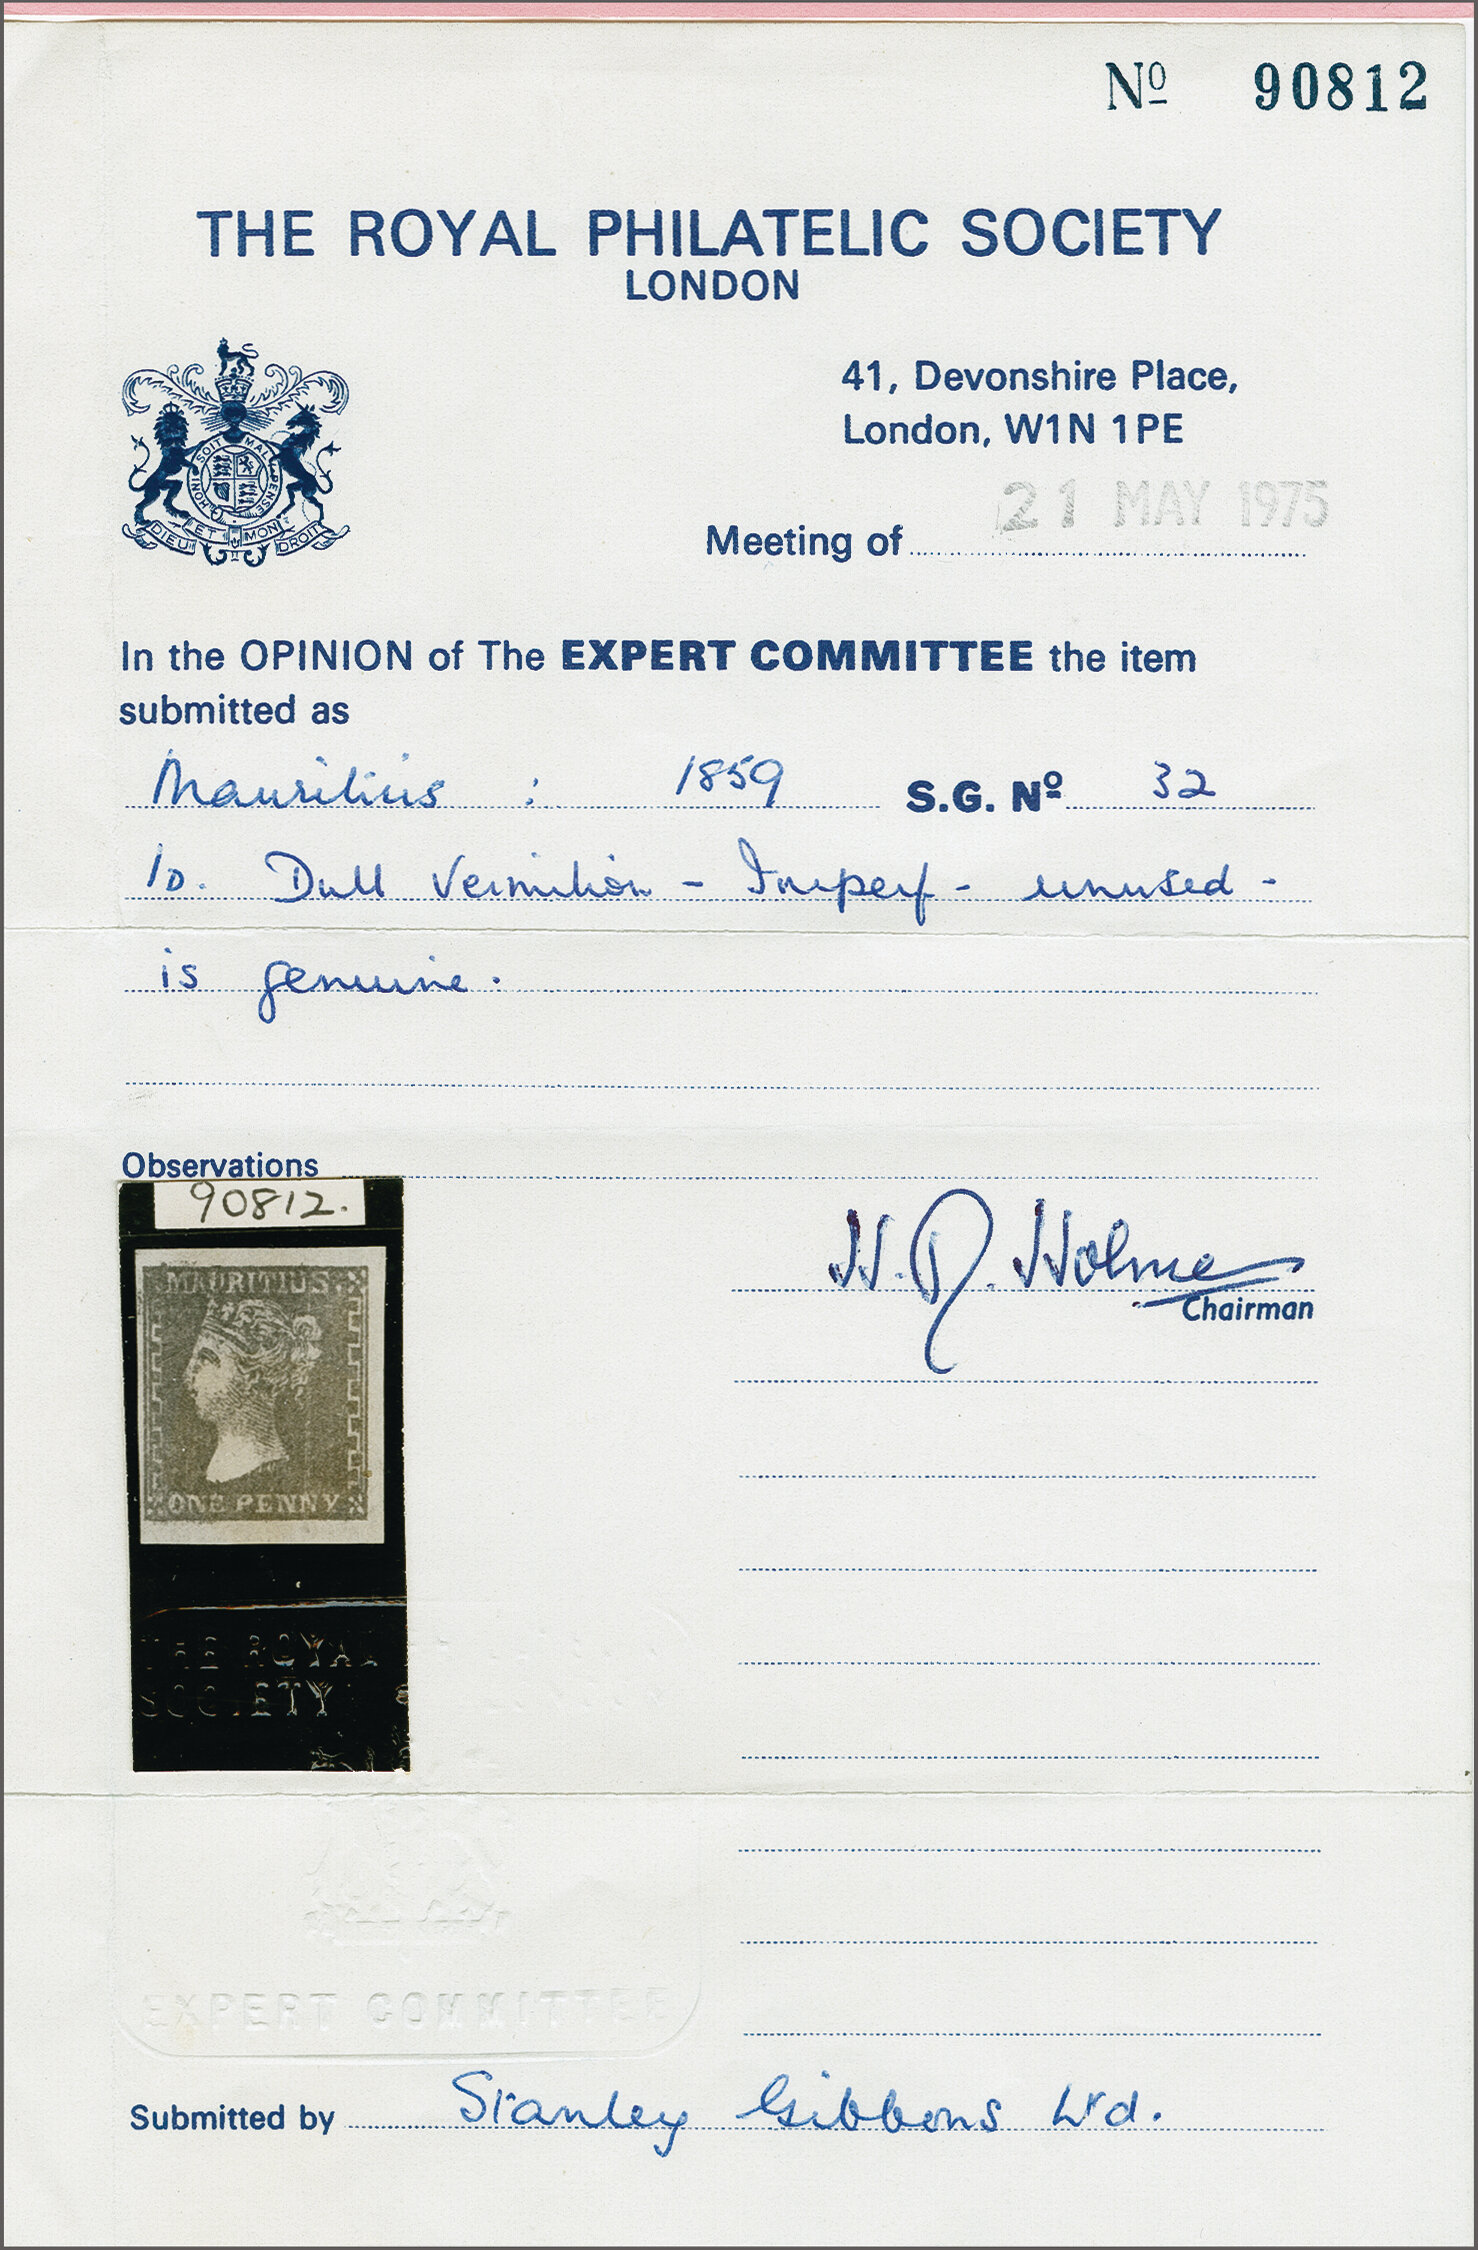 Nº 90812
THE ROYAL PHILATELIC SOCIETY
LONDON
41, Devonshire Place,
London, W1N 1PE
HONI SOIT MAL Y PENSE
DIEU ET MON DROIT
Meeting of 21 MAY 1975
In the OPINION of The EXPERT COMMITTEE the item
submitted as
Mauritius : 1859 S.G. Nº 32
1D. Dull Vermilion - Imperf - unused -
is genuine.
Observations
90812.
MAURITIUS
ONE PENNY
H. R. Holme
Chairman
THE ROYAL
SOCIETY
EXPERT COMMITTEE
Submitted by Stanley Gibbons Ltd.